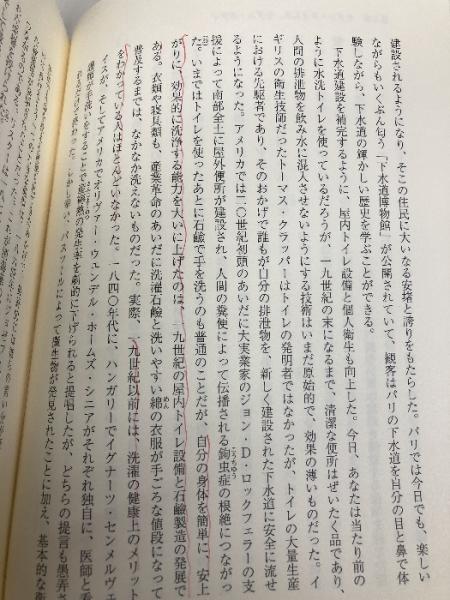 建設されるようになり、そこの住民に大いなる安堵と誇りをもたらした。パリでは今日でも、楽しい
ながらもいくぶん匂う「下水道博物館」が公開されていて、観客はパリの下水道を自分の目と鼻で体
験しながら、下水道の輝かしい歴史を学ぶことができる。
下水道建設を補完するように、屋内トイレ設備と個人衛生も向上した。今日、あなたは当たり前の
ように水洗トイレを使っているだろうが、一九世紀の末になるまで、清潔な便所はぜいたく品であり、
人間の排泄物を飲み水に混入させないようにする技術はいまだ原始的で、効果の薄いものだった。イ
ギリスの衛生技師だったトーマス・クラッパーはトイレの発明者ではなかったが、トイレの大量生産
における先駆者であり、そのおかげで誰もが自分の排泄物を、新しく建設された下水道に安全に流せ
るようになった。アメリカでは二〇世紀初頭のあいだに大実業家のジョン・D・ロックフェラーの支
援によって南部全土に屋外便所が建設され、人間の糞便によって伝播される鉤虫症の根絶につながっ
た。いまではトイレを使ったあとに石鹸で手を洗うのも普通のことだが、自分の身体を簡単に、安上
がりに、効果的に洗浄する能力を大いに上げたのは、一九世紀の屋内トイレ設備と石鹸製造の発展で
ある。衣類や寝具類も、産業革命のあいだに洗濯石鹸と洗いやすい綿の衣服が手ごろな値段になって
普及するまでは、なかなか洗えないものだった。実際、一九世紀以前には、洗濯の健康上のメリット
をわかっている人はほとんどいなかった。一八四〇年代に、ハンガリーでイグナーツ・センメルヴェ
イスが、そしてアメリカでオリヴァー・ウェンデル・ホームズ・シニアがそれぞれ独自に、医師と看
護師が手洗いをすることで産褥熱の発生率を劇的に下げられると提唱したが、どちらの提言も愚弄さ
パスツールによって微生物が発見されたことに加え、基本的な衛